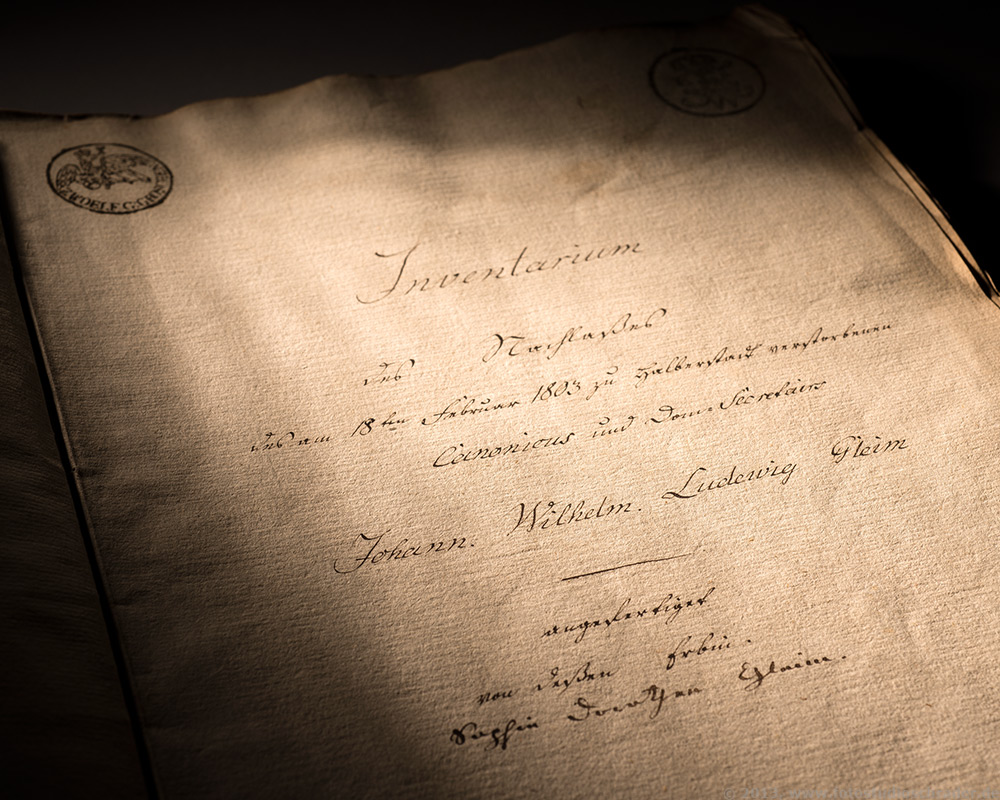 Inventarium
des Nachlaßes
des am 18ten Februar 1803 zu Halberstadt verstorbenen
Canonicus und Dom-Secretairs
Johann. Wilhelm. Ludewig Gleim
angefertiget
von deßen Erbin.
Sophie Dorothea Gleim.